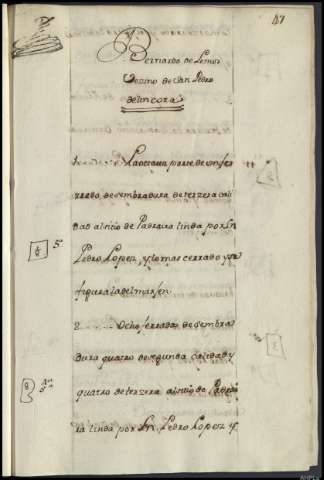 47
Bernardo de Lemos
Vezino de San Pedro
de Lincora
La octava parte de un fer
rado de sembradura de terzera cali
dad al sitio de Padreiro linda por Dn
Pedro Lopez, y lo mas cerrado y su
figura la del marjen
2 ...... Ocho ferrados de sembra
dura quatro de segunda calidad y
quatro de terzera al sitio de
linda por Dn. Pedro Lopez y
5